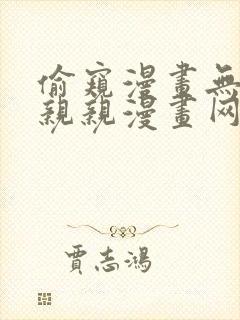 偷窺漫畫無
親親漫畫网
賈志鴻